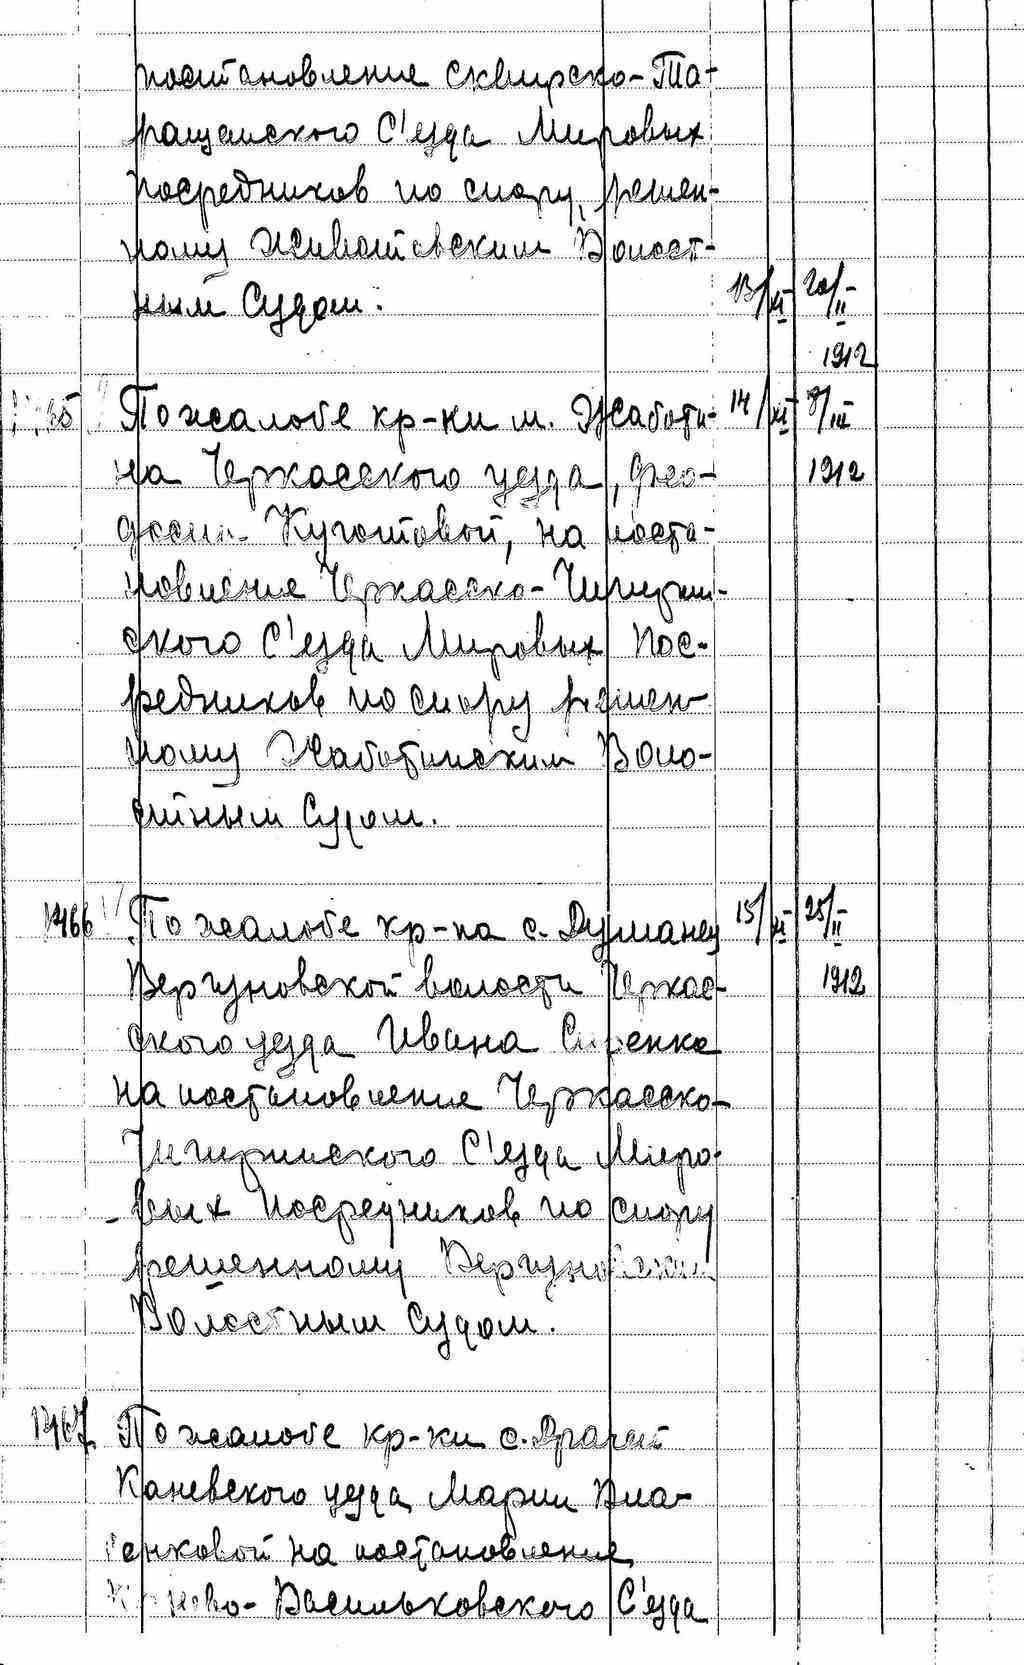 постановление Сквирско-Та-
ращанского С'езда Мировых
Посредников по спору, решен-
ному Животовским Волост-
ным Судом. 13/XI 20/II
1912
По жалобе кр-ки м. Жаботи- 14/XI 8/III
на Черкасского уезда, Фео- 1912
досии на поста-
новление Черкасско-Чигирин-
ского С'езда Мировых Пос-
редников по спору решен-
ному Жаботинским Воло-
стным Судом.
1466 По жалобе кр-на с. Думанец 15/XI 25/II
Вергуновской волости Черкас- 1912
ского уезда Ивана Сиренко
на постановление Черкасско-
Чигиринского С'езда Миро-
вых Посредников по спору
решенному Вергуновским
Волостным Судом.
1467 По жалобе кр-ки с.
Каневского уезда, Марии Вла-
сенковой на постановление
Васильковского С'езда